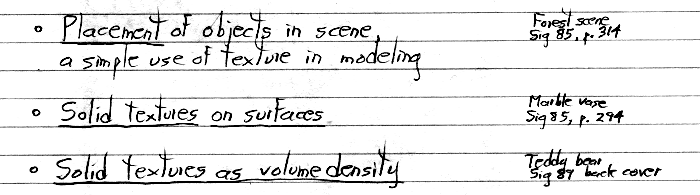 • Placement of objects in scene, Forest scene
a simple use of texture in modeling Sig 85, p. 314
• Solid textures on surfaces Marble vase
Sig 85, p. 294
• Solid textures as volume density Teddy bear
Sig 89 back cover